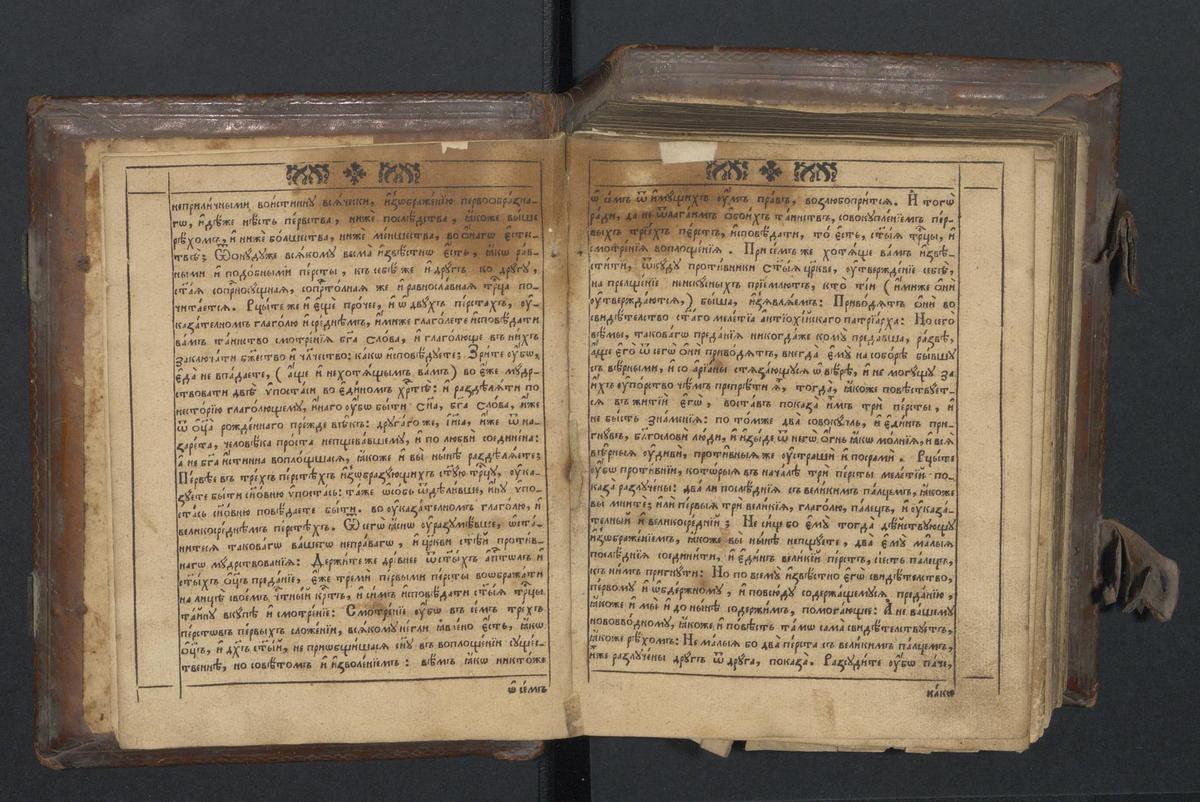 неприли́чными вои́стинну вся́чески, и҆зѡбраже́нїю первоѡбра́зна-
гѡ, и҆дѣ́же нѣ́сть пе́рвства, нижѐ послѣ́дства, ꙗ҆́коже вы́ше
рѣ́хомъ, и҆ нижѐ бо́лшества, ниже ме́ншества, во ѻ҆́нагѡ є҆стє-
твѣ̀; Ѿѻнꙋ́дꙋже всѧ́комꙋ весма̀ и҆звѣ́стнѡ є҆́сть, ꙗ҆́кѡ ра́в-
ными и҆ подо́бными пе́рсты, къ себѣ́ же и҆ дрꙋ́гъ ко дрꙋ́гꙋ,
ст҃а́ѧ сопрⷭ҇носꙋ́щная, сопрⷭ҇то́лная же и҆ равносла́вная трⷪ҇ца по-
чита́ется. Рцы́те же и҆ є҆щѐ про́чее, и҆ ѡ҆ двꙋ́хъ пе́рстахъ, ᲂу҆-
каза́телномъ глаго́лю и҆ сре́днѣмъ, и҆́миже глаго́лете и҆сповѣ́дати
ва́мъ та́инство смотре́нїѧ бг҃а сло́ва, и҆ глаго́люще въ ни́хъ
заключа́ти бжество̀ и҆ чл҃чество: ка́кѡ и҆сповѣ́дꙋете; Зри́те ᲂу҆́бѡ,
є҆да̀ не впада́ете, ( а҆́ще и҆ нехотѧ́щымъ ва́мъ ) во є҆́же мꙋ́др-
ствовати двѣ̀ ѵ҆поста̑си во є҆ди́номъ хрⷭ҇тѣ̀: и҆ раздѣлѧ́ти по
несто́рїю глаго́лющемꙋ, и҆́наго ᲂу҆́бѡ бы́ти сн҃а, бг҃а сло́ва, и҆́же
ѿ ѻц҃а̀ рожде́ннаго пре́жде вѣ̑къ: дрꙋга́го же, і҆и҃са, и҆́же ѿ на-
заре́та, человѣ́ка про́ста непщева́вшемꙋ, и҆ по любвѝ соедине́на:
а҆ не бг҃а и҆́стинна вопло́щшася, ꙗ҆́коже и҆ вы̀ ны́нѣ раздѣлѧ́ете;
Пе́рвѣе въ тре́хъ пе́рстѣхъ и҆зѡбразꙋ́ющихъ ст҃ꙋю трⷪ҇цꙋ, ᲂу҆ка́-
зꙋете бы́ти сн҃о́внюю ѵ҆поста́сь: та́же ѡ҆со́бь ѿдѣли́вше, и҆́нꙋ ѵ҆по-
ста́сь сн҃о́внюю повѣ́даете бы́ти. во ᲂу҆каза́телномъ глаго́лю, и҆
великосре́днѣмъ пе́рстѣхъ. Ѿ сегѡ̀ ꙗ҆́снѡ ᲂу҆разꙋмѣ́вше, ѡ҆ста-
ни́теся такова́гѡ ва́шегѡ непра́вагѡ, и҆ цр҃кви ст҃ѣ́й проти́в-
нагѡ мꙋ́дрствованїя: Держи́те же дре́внее ѿ ст҃ы́хъ а҆пⷭ҇тлъ и҆
ст҃ы́хъ ѻц҃ъ преда́нїе, є҆́же тремѝ пе́рвыми пе́рсты воѡбража́ти
на лицѣ̀ свое́мъ чⷭ҇тны́й крⷭ҇тъ, и҆ си́мъ и҆сповѣ́дати ст҃ы́я трⷪ҇цы
та́йнꙋ вкꙋ́пѣ и҆ смотре́нїе: Смотре́нїе ᲂу҆́бѡ въ се́мъ тре́хъ
пе́рстѡвъ пе́рвыхъ сложе́нїи, всѧ́комꙋ не́гли ꙗ҆вле́но є҆́сть, ꙗ҆́кѡ
ѻц҃ъ, и҆ дх҃ъ ст҃ы́й, не приѡбщи́шася сн҃ꙋ въ воплоще́нїи сꙋ́щес-
твеннѣ, но совѣ́томъ и҆ и҆зволе́нїемъ: вѣ́мъ ꙗ҆́кѡ никто́же
ѡ҆ се́мъ
ѡ҆ се́мъ ѿ и҆мꙋ́щихъ ᲂу҆́мъ пра́въ, возлюбопри́тся. И҆ тогѡ̀
ра́ди, да не ѿлага́имъ ѻ҆бои́хъ та̑инствъ, совокꙋпле́нїемъ пе́р-
выхъ тре́хъ пе́рстъ, и҆сповѣ́дати, то̀ є҆́сть, ст҃ы́я трⷪ҇цы, и҆
смотре́нїя воплоще́нїя. При се́мъ же хотѧ́ще ва́мъ и҆звѣ-
сти́ти, ѿкꙋ́дꙋ проти́вники ст҃ы́я цр҃кве, ᲂу҆твержде́нїе себѣ̀,
на преле́нїе неискꙋ́сныхъ прїе́млютъ, кто̀ ті́и ( и҆ми́же ѻ҆нѝ
ᲂу҆твержда́ются, ) бы́ша, и҆з̾ѧвлѧ́емъ: Приво́дятъ ѻ҆нѝ во
свидѣ́телство ст҃а́го меле́тїа а҆нтїохі́йскаго патрїа́рха: Но сего̀
вѣ́мы, такова́гѡ преда́нїя никогда́же комꙋ̀ преда́вша, ра́звѣ,
а҆́ще є҆го̀ ѡ҆ сегѡ̀ ѻ҆нѝ приво́дятъ, внегда̀ є҆мꙋ̀ на собо́рѣ бы́вшꙋ
съ вѣ́рными, и҆ со а҆рїа̑ны стяза́ющꙋся ѡ҆ вѣ́рѣ, и҆ не могꙋ́щꙋ за
и҆́хъ ᲂу҆по́рство чѣ́мъ препрѣ́ти ѧ҆̀, тогда̀, ꙗ҆́коже повѣ́ствꙋет-
ся въ житїѝ є҆гѡ̀, воста́въ показа̀ и҆̀мъ трѝ пе́рсты, и҆
не бы́сть зна́менїя: по то́мже два̀ совокꙋ́пль, и҆ є҆ди́нъ при-
гнꙋ́въ, блгⷭ҇ловѝ лю́ди, и҆ и҆зы́де ѿ негѡ̀ ѻ҆́гнь ꙗ҆́кѡ мо́лнїя, и҆ вся̀
вѣ̑рныя ᲂу҆дивѝ, проти̑вныя же ᲂу҆страшѝ и҆ посрамѝ. Рцы́те
ᲂу҆́бѡ проти́внїи, кото́рыя въ нача́лѣ трѝ пе́рсты меле́тїй по-
каза̀ разлꙋче́ны: два̀ ли послѣ̑днїя съ вели́кимъ па́лцемъ, ꙗ҆́коже
вы̀ мни́те; и҆лѝ пе́рвыя трѝ вели́кїя, глаго́лю, па́лецъ, и҆ ᲂу҆каза́-
телный и҆ великосре́днїй; Не си́це бо є҆мꙋ̀ тогда̀ дѣ́йствꙋющꙋ
и҆зѡбраже́нїемъ, ꙗ҆́коже вы̀ ны́нѣ непщꙋ́ете, два̀ є҆мꙋ̀ ма̑лыя
послѣ̑днїя соедини́ти, и҆ є҆ди́нъ вели́кїй пе́рстъ, си́есть па́лецъ,
къ ни́мъ пригнꙋ́ти: Но по всемꙋ̀ и҆звѣ́стно є҆гѡ̀ свидѣ́телство,
пе́рвомꙋ и҆ ѡ҆бде́ржномꙋ, и҆ повсю́дꙋ содержа́щемꙋся преда́нїю,
ꙗ҆́коже и҆ мы̀ и҆ до ны́нѣ содержи́мъ, помога́юще: А҆ не ва́шемꙋ
нововво́дномꙋ, ꙗ҆́коже и҆ по́вѣсть та́мѡ сама̀ свидѣ́телствꙋетъ,
ꙗ҆́коже рѣ́хомъ: Не ма̑лыя бо два̀ пе́рста съ вели́кимъ па́лцемъ,
и҆̀же разлꙋче́ны дрꙋ́гъ ѿ дрꙋ́га, показа̀. Разсꙋди́те ᲂу҆́бѡ па́че,
ка́кѡ